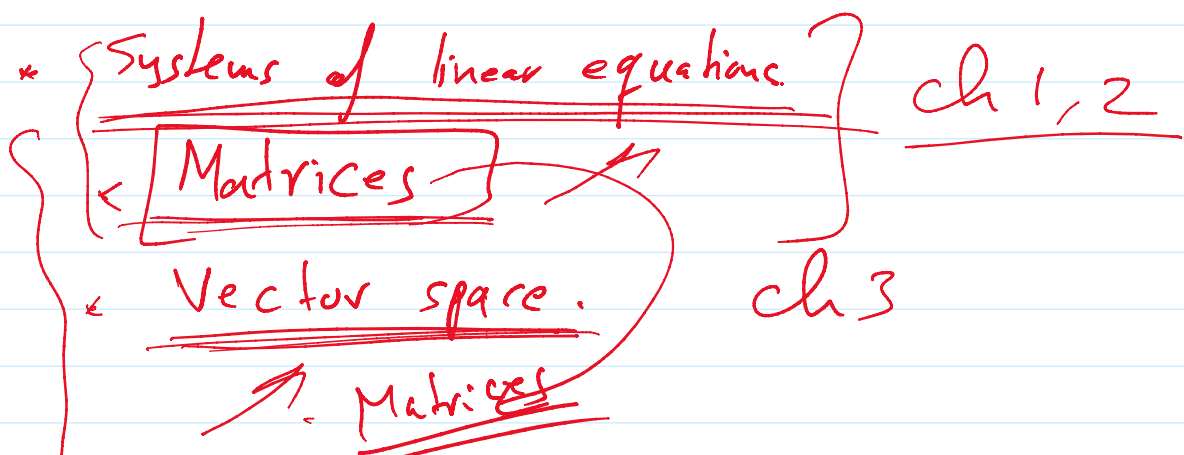 * Systems of linear equations. ch 1, 2
Matrices
Vector space. ch 3
Matrices